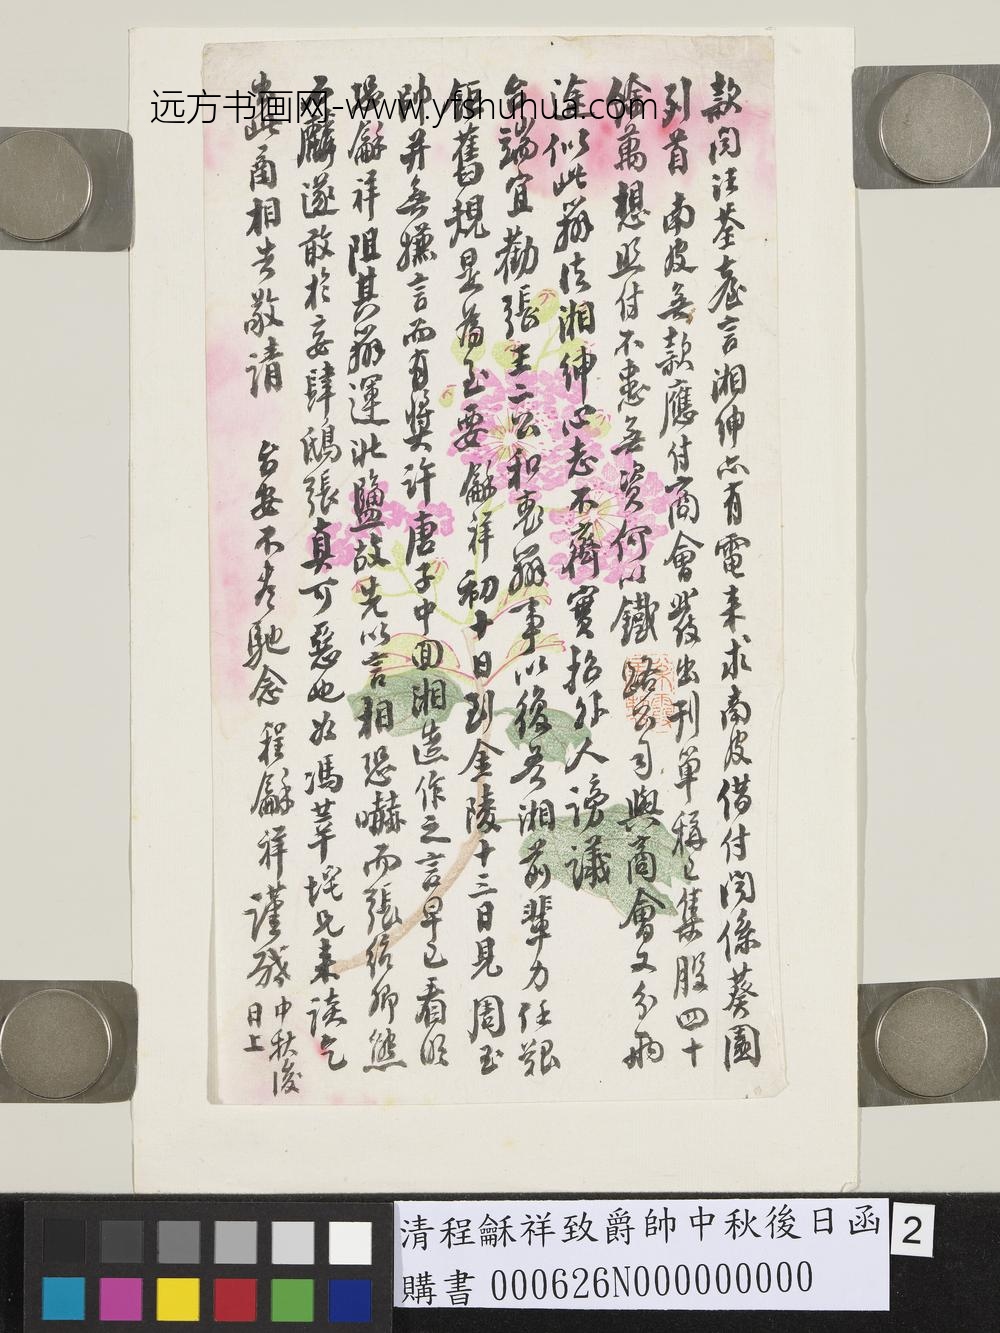 款閱汪荃臺言湘紳亦有電来求南皮借付閱係葵園
列首南皮無款應付商會發出刊單稱已集股四十
餘萬想照付不患無資何以鐵路公司與商會又分兩
途似此辦法湘紳心志不齊實招外人謗議
台端宜勸張王二公和衷辦事以後吾湘前輩力任艱
舊規是為至要龢祥初十日到金陵十三日見周玉
帥并無嫌言而有獎許唐子中回湘造作之言早已看
龢祥阻其辦運北鹽故先以言相恐嚇而張紹卿熊
麟遂敢於妄肆鴟張真可惡也如馮莘垞兄来談乞
此商相告敬請
台安不尽馳念 程龢祥謹啟 中秋後
日上
远方书画网-www.yfshuhua.com
清程龢祥致爵帥中秋後日函
購書 000626N000000000
2